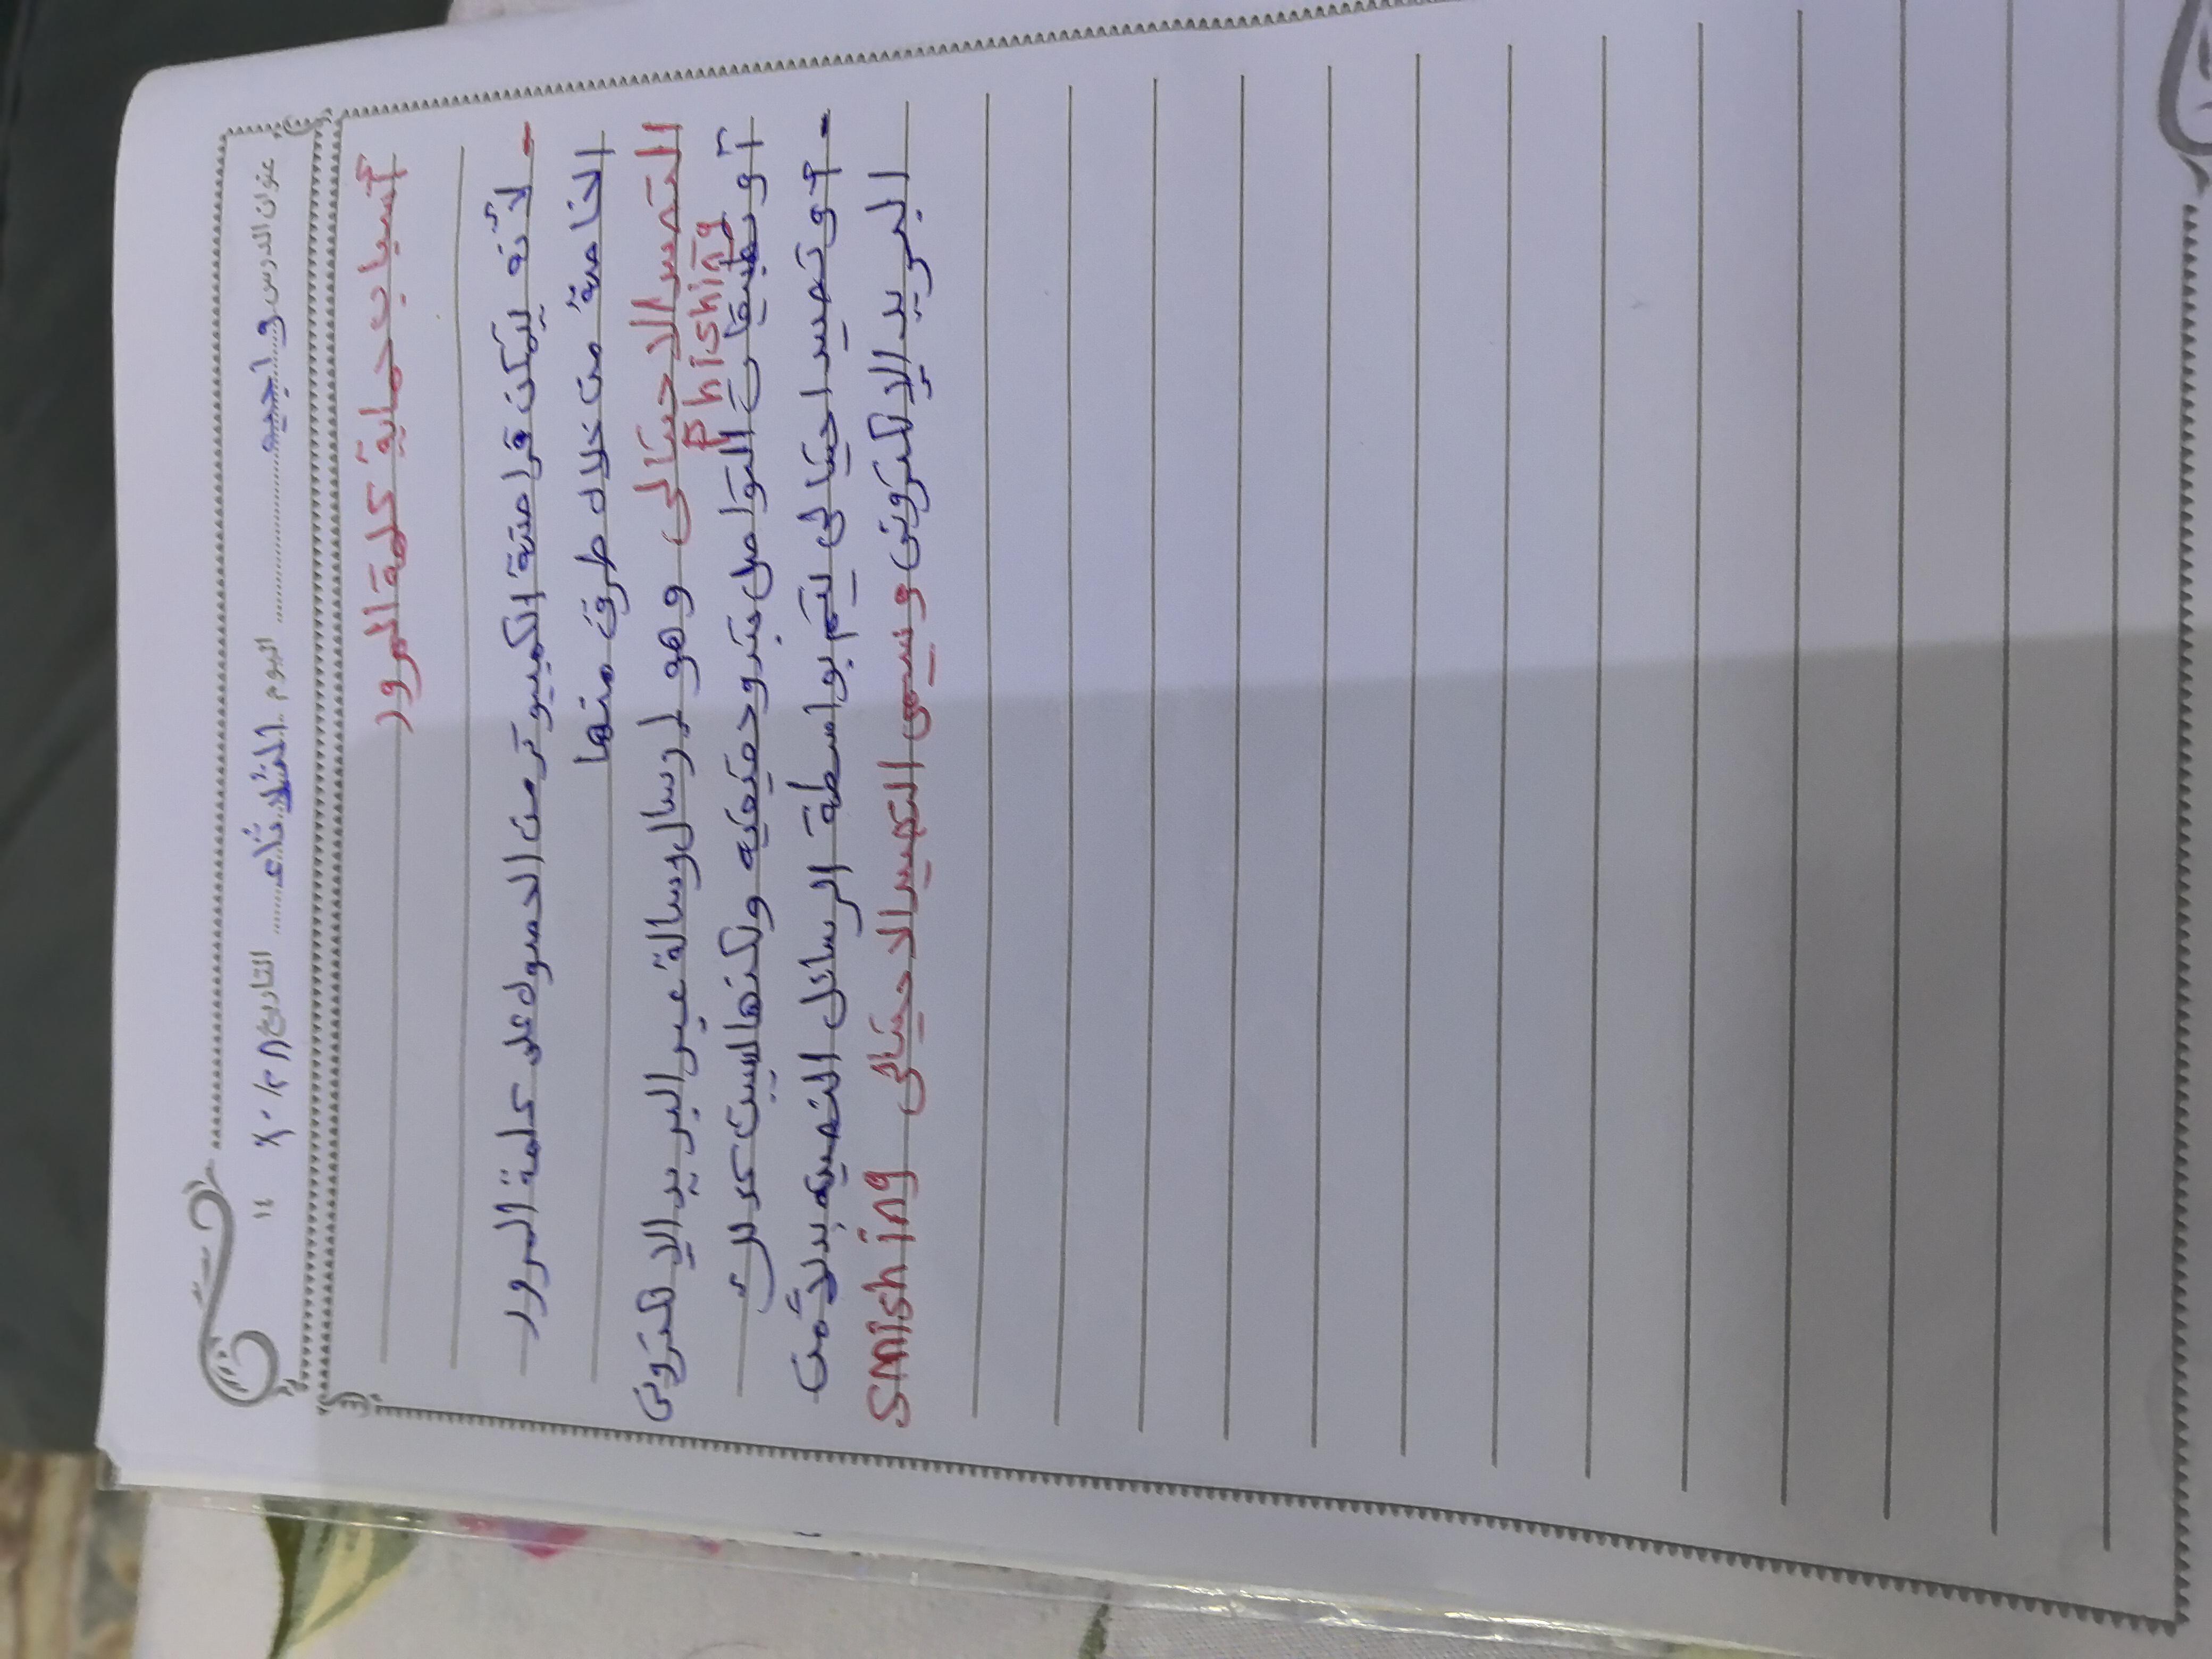 عنوان الدرس واجب اليوم الثلاثاء التاريخ
١٤
أسباب حماية كلمة المرور
- لأنه يمكن قراصنة الكمبيوتر من الحصول على كلمة المرور
الخاصة من خلال طرق منها
التصيد الاحتيالي وهو إرسال رسالة عبر البريد الإلكتروني
Phishing
أو تطبيقات التواصل تبدو حقيقيه ولكنها ليست كذلك
- هو تصيد احتيالي يتم بواسطة الرسائل النصيه بدلاً من
البريد الإلكتروني ويسمى التصيد الاحتيالي Smishing